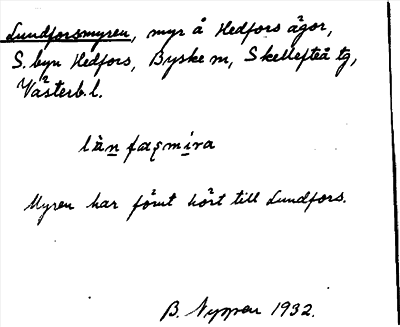 Lundforsmyren, myr å Hedfors ägor,
S. byn Hedfors, Byske sn, Skellefteå tg,
Västerb. l.
Myren har förut hört till Lundfors.
B. Nyman 1932.